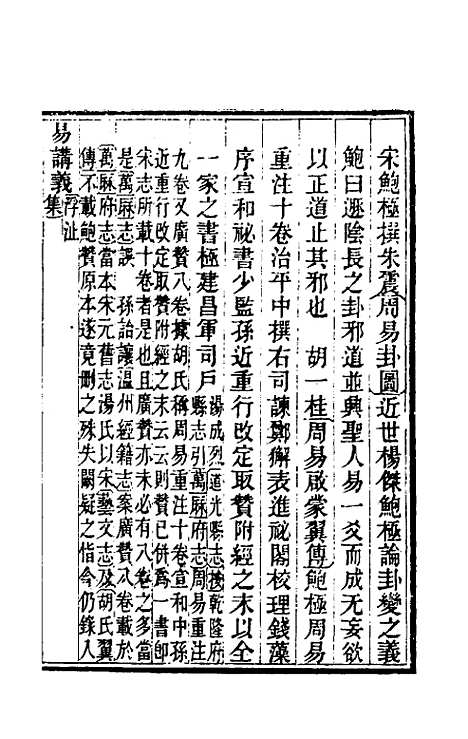 宋鮑極撰朱震周易卦圖近世楊傑鮑極論卦變之義
鮑曰遯陰長之卦邪道並興聖人易一爻而成无妄欲
以正道止其邪也　胡一桂周易啟蒙翼傳鮑極周易
重注十卷治平中撰右司諫鄭獬表進祕閣校理錢藻
序宣和祕書少監孫近重行改定取贊附經之末以全
一家之書極建昌軍司戶
湯成烈道光縣志
縣志引萬厤府志周易重注
九卷又廣贊八卷據胡氏稱周易重注十卷宣和中孫
近重行改定取贊附經之末云云則贊已併爲一書卽
宋志所載十卷者是也且廣贊亦未必有八卷之多當
是萬厤志誤　孫詒讓溫州經籍志案廣贊八卷載於
萬厤府志當本宋元舊志湯氏以宋藝文志及胡氏翼
傳不載鮑贊原本遂竟刪之殊失闕疑之指今仍錄入
易講義
浮沚
集